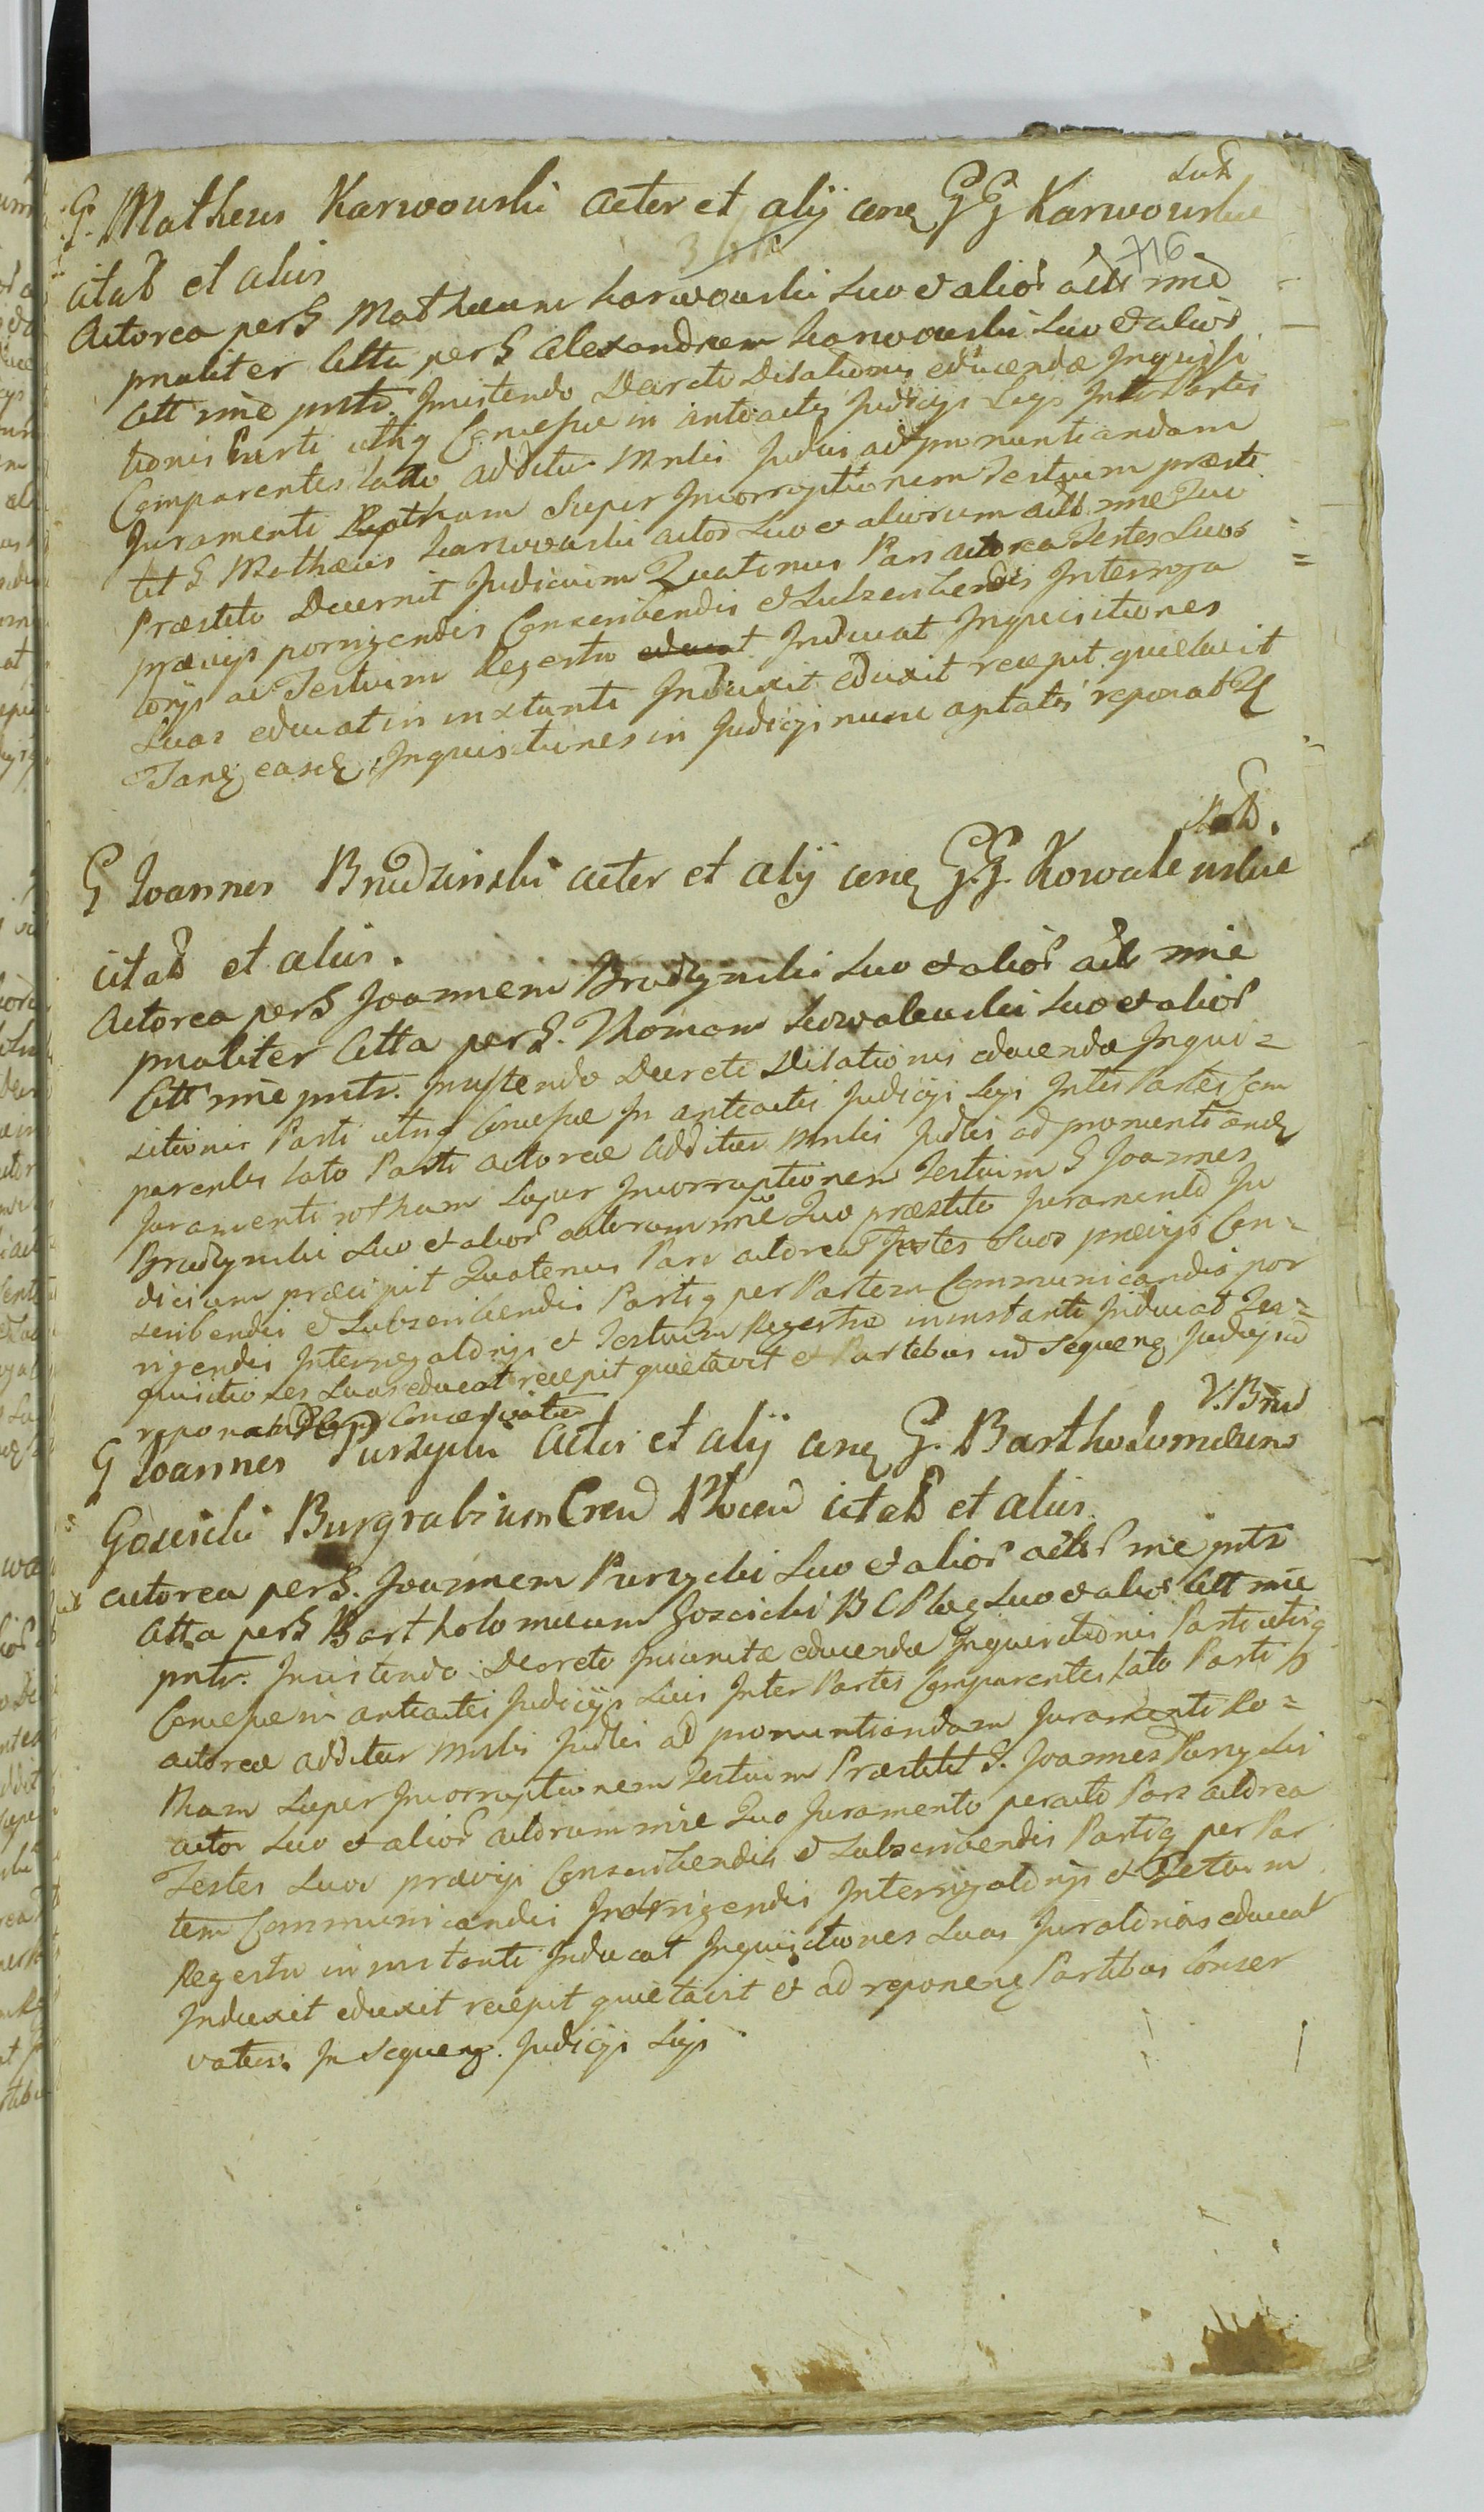 Luk
G. Matheus Karwowski Actor et alij cone GG Karwowskie
716
citat et alios
Actorea per G Matheum Karwowski suo et alior act nne
pnaliter Citta per G Alexandrum Karwowski suo et alior
Citt nne pntr. Insistendo Decreto Dilationis educendæ Inquisi
tionis Parti utriq Concessæ in anteactis Judicijs Sujs Inter Partes
Comparentes lato additur Mnlis Judlis ad pronuntiandam
Juramenti Rotham super Incorruptionem Testium præsti
tit G Mathæus Karwowski actor suo et aliorum act nne Quo
Præstito Decernit Judicium Quatenus Pars actorea Testes suos
prævijs porrigendis Conscribendis et subscribendis Interroga
torijs ac Testium Regestro Inducat Inquisitiones
suas educat in instanti Induxit eduxit recepit quietavit
Tanq easdē Inquisitiones in Judicijs nunc aptatis reponat

G Joannes Brudzinski actor et alij cone G.G. Kowalewskie
citat et alios.
Actorea per G Joannem Brudzynski suo et alior act nne
pnaliter Citta per G. Thomam Kowalewski suo et alior
Citt nne pntr. Insistendo Decreto Dilationis educendæ Inqui=
sitionis Parti utriq Concessæ In anteactis Judicijs Sujs Inter Partes Com
parentes lato Parti actoreæ additur Mnlis Judlis ad pronuntiandā
Juramenti rotham super Incorruptionem Testium G Joannes
Brudzynski suo et alior actorum nne Quo præstito Juramento Ju
dicium præcipit Quatenus Pars actorea Testes suos prævijs Con=
scribendis et subscribendis Partiq per Partem Communicandis por
rigendis Interrogatorijs et Testium Regestro in instanti Inducat Inq=
quisitiones suas educat recepit quietavit et Partibus in Sequenq Judicijs ad
reponat Conservatur
V. Brud
G Joannes Purzycki Actor et alij cone G. Bartholomeum
Goscicki Burgrabium Cren Plocen citat et alios
actorea per G. Joannem Purzycki suo et alior act nne pntr
Citta per G Bartholomeum Goscicki B C Ploc suo et alior Citt nne
pntr. Insistendo Decreto Iuramtæ educendæ Inquisitionis Parti utriq
Concessæ in anteactis Judicijs Suis Inter Partes Comparentes lato Parti
actoreæ additur Mnlis Judlis ad pronuntiandam Juramenti Ro=
tham super Incorruptionem Testium Præstitit G. Joannes Purzycki
actor suo et alior actorum nne Quo Juramento peracto Pars actorea
Testes suos prævijs Conscribendis et subscribendis Partiq per Par
tem Communicandis Porrigendis Interrogatorijs et Testium
Regestro in instanti Inducat Inquisitiones suas Juratorias educat
Induxit eduxit recepit quietavit et ad reponenq Partibus Conser
vatur. In Sequenq. Judicijs Sujs